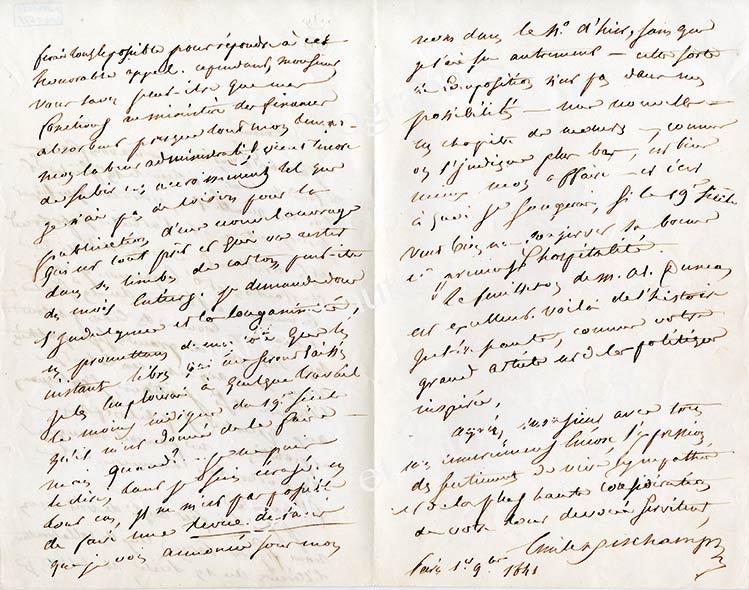 ferai tout le possible pour répondre à cet
honorable appel. cependant, monsieur
vous savez peut-être que mes
fonctions au ministère des finances
absorbent presque tout mon tems -
mon labeur administratif vient encore
de subir un accroissement tel que
je n'ai pas de loisirs pour la
publication d'un nouvel ouvrage
qui est tout prêt et qui va rester
dans les limbes du carton, peut-être
des mois entiers. je demande donc
l'indulgence et la longanimité,
en promettant que les
instants libres qui me seront laissés
je les emploierai à quelque travail
le moins indigne du 19e Siècle
qu'il me sera donné de le faire -
mais quand? je ne puis
le dire, dans je suis écrasé. en
tout cas, il ne m'est pas possible
de faire une revue de
que je vois annoncée sous mon
nom dans le No. d'hier, sans que
j'aie su autrement - cette sorte
de composition n'est pas dans mes
possibilités - une nouvelle -
un chapitre de mœurs -, comme
on l'indique plus bas, est bien
mieux mon affaire - et c'est
à quoi je songerai, si le 19e Siècle
veut bien me conserver sa bonne
et l'hospitalité.
Le feuilleton de m. al. Dumas
est excellent. voilà de l'histoire
comme votre
grand article est de la politique
inspirée.
Agréez, monsieur avec tous
mes remerciemens encore l'expression
des sentimens de vive sympathie
et de la plus haute considération
de votre tout dévoué serviteur,
Emile Deschamps
Paris 1er 9bre 1841